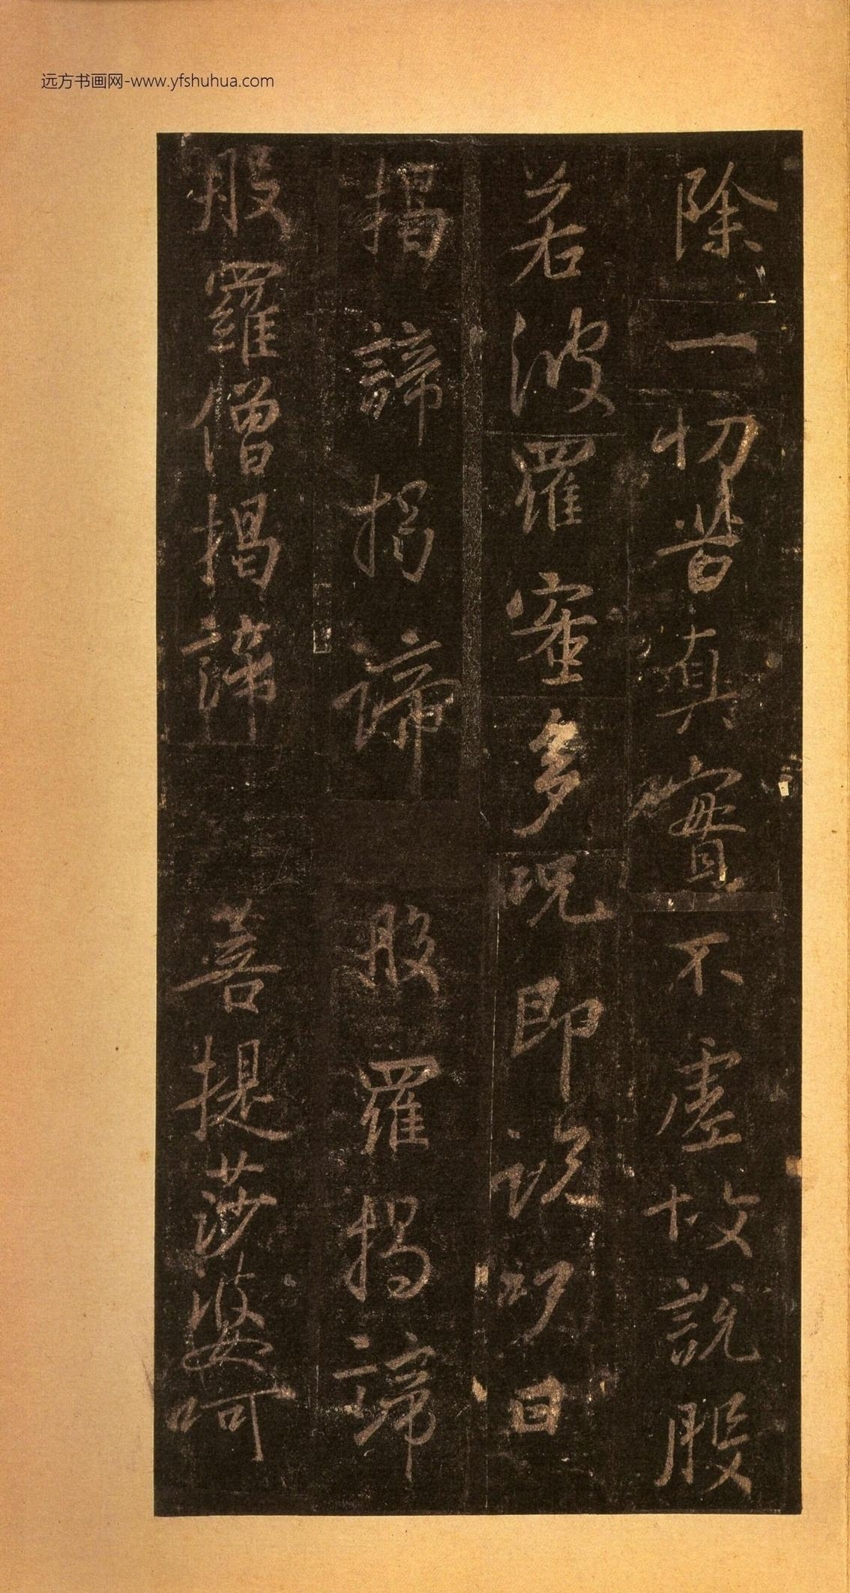 远方书画网-www.yfshuhua.com
除一切苦真實不虛故說般
若波羅蜜多呪即說呪曰
揭諦揭諦 般羅揭諦
般羅僧揭諦 菩提莎婆呵